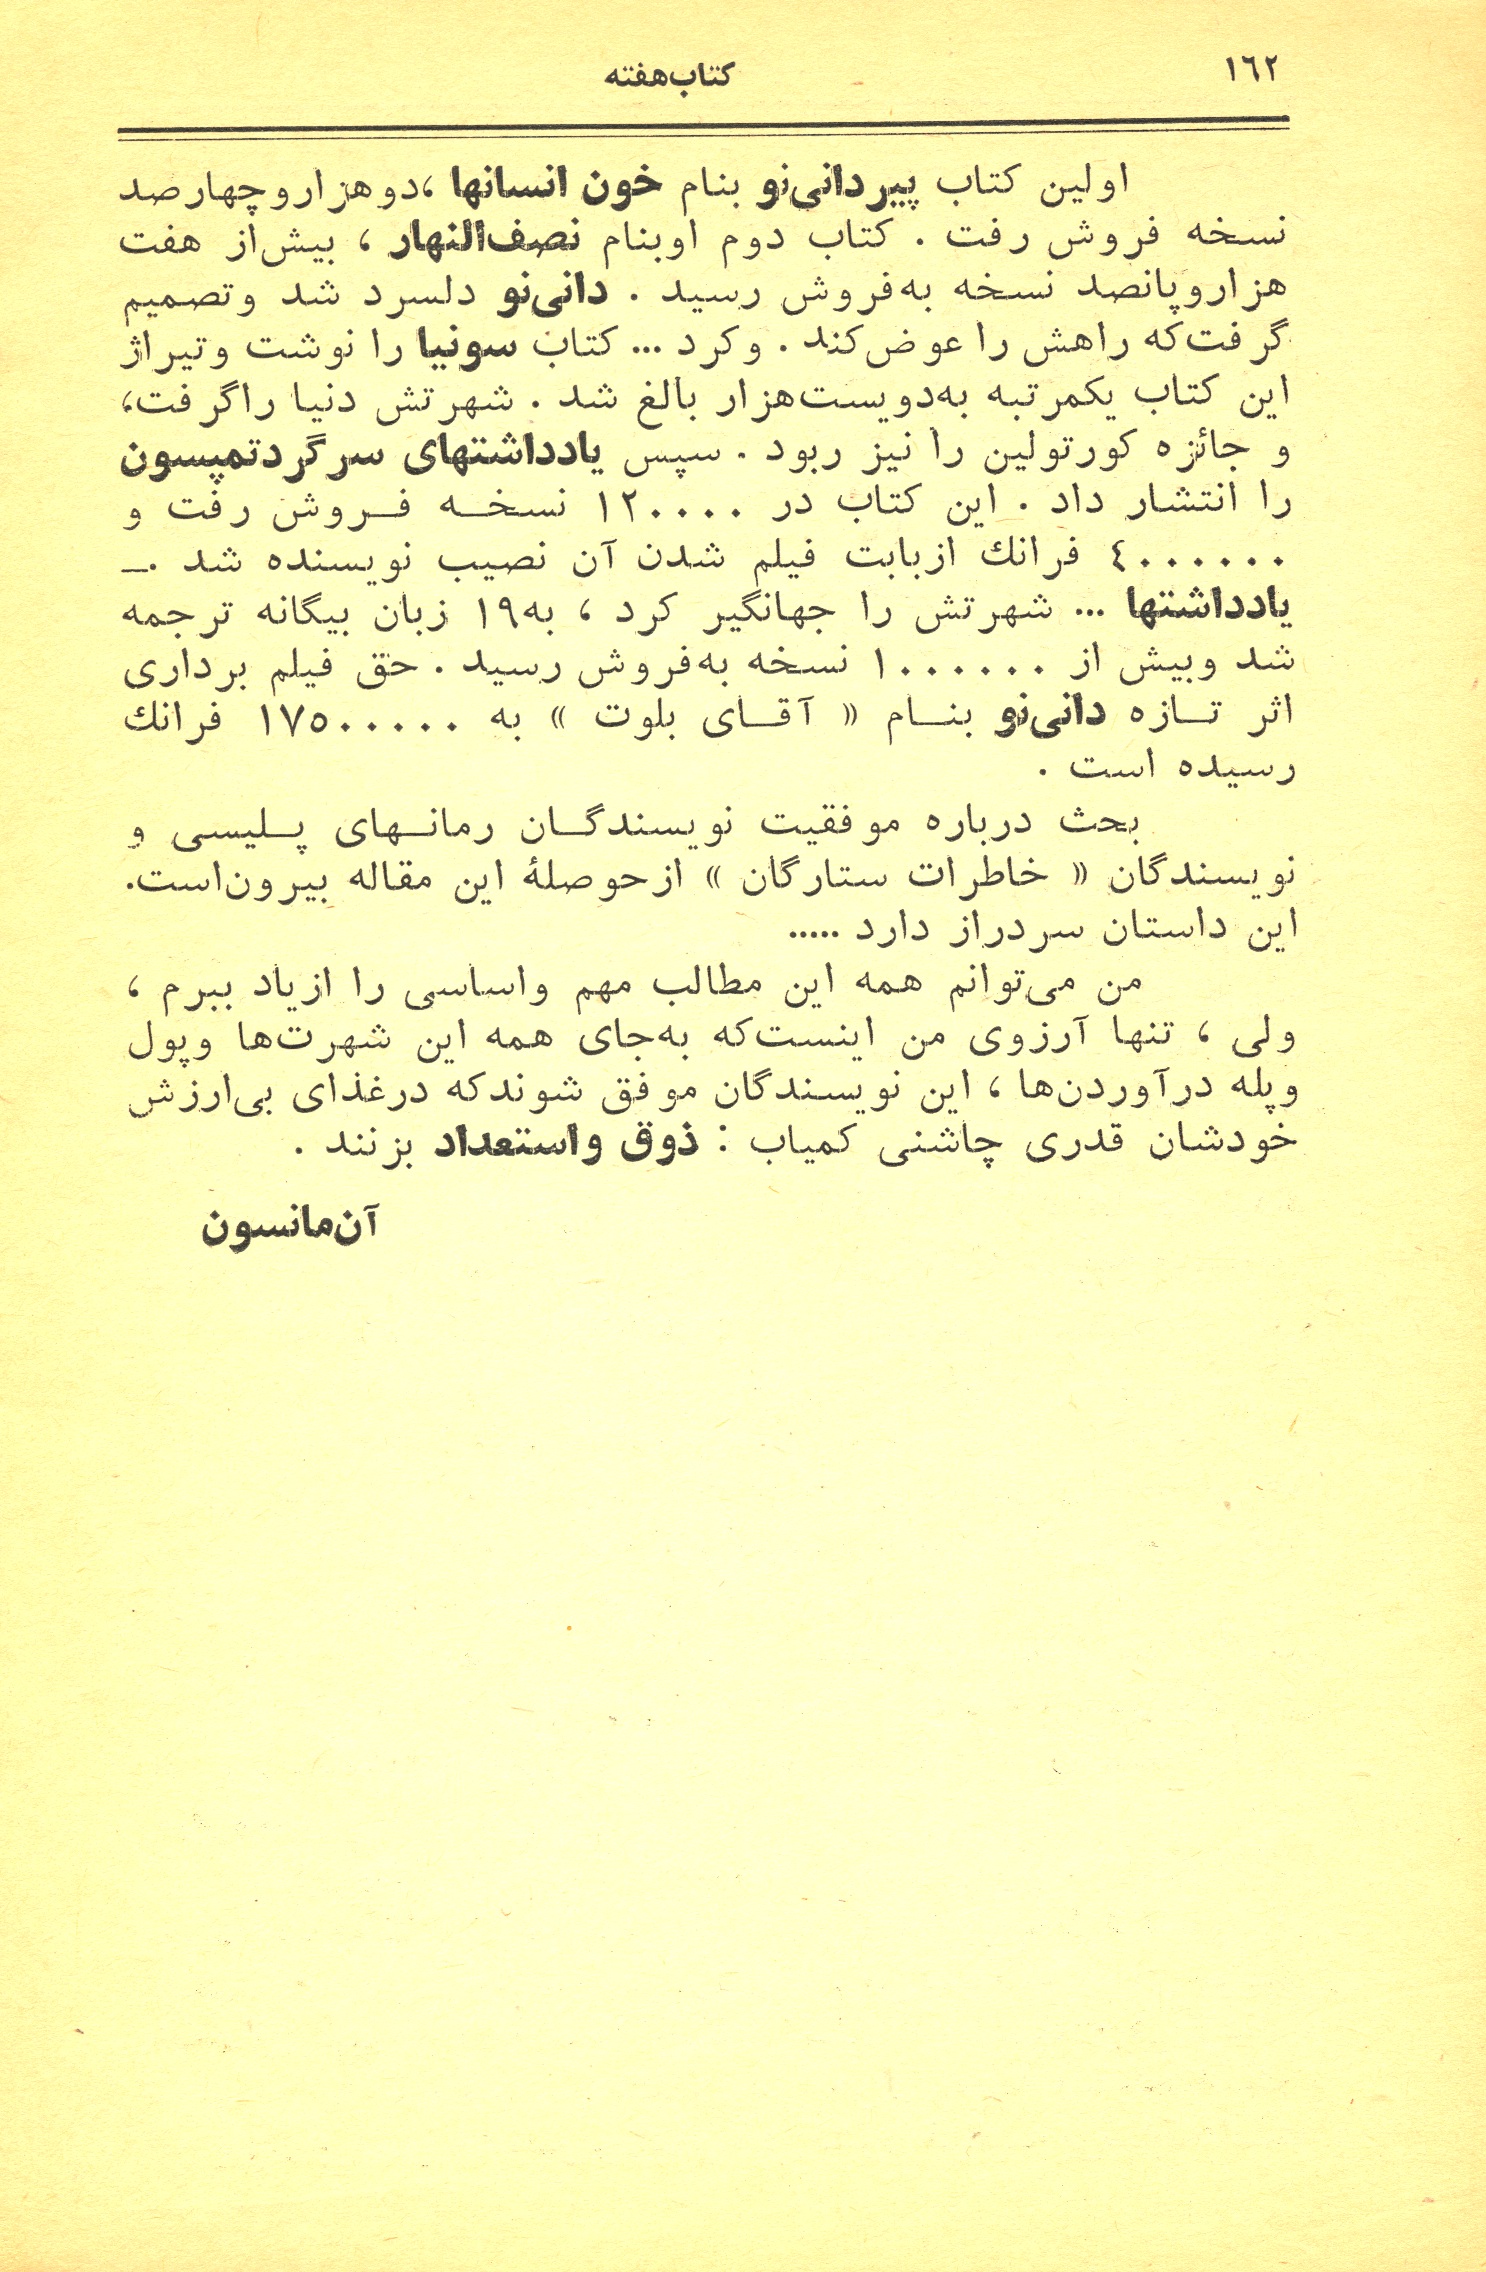 ١٦٢
کتاب‌هفته
اولین کتاب پیردانی‌نو بنام خون انسانها ،دوهزاروچهارصد
نسخه فروش رفت . کتاب دوم اوبنام نصف‌النهار ، بیش‌از هفت
هزاروپانصد نسخه به‌فروش رسید . دانی‌نو دلسرد شد وتصمیم
گرفت‌که راهش را عوض‌کند . وکرد ... کتاب سونیا را نوشت وتیراژ
این کتاب یکمرتبه به‌دویست‌هزار بالغ شد . شهرتش دنیا راگرفت،
و جائزه کورتولین را نیز ربود . سپس یادداشتهای سرگردتمپسون
را انتشار داد . این کتاب در ١٢٠٠٠٠ نسخـه فـروش رفت و
٤٠٠٠٠٠٠ فرانك ازبابت فیلم شدن آن نصیب نویسنده شد .ـ
یادداشتها ... شهرتش را جهانگیر کرد ، به١٩ زبان بیگانه ترجمه
شد وبیش از ١٠٠٠٠٠٠ نسخه به‌فروش رسید . حق فیلم برداری
اثر تـازه دانی‌نو بنـام « آقـای بلوت » به ١٧٥٠٠٠٠٠ فرانك
رسیده است .
بحث درباره موفقیت نویسندگـان رمانـهای پـلیسی و
نویسندگان « خاطرات ستارگان » ازحوصلۀ این مقاله بیرون‌است.
این داستان سردراز دارد .....
من می‌توانم همه این مطالب مهم واساسی را ازیاد ببرم ،
ولی ، تنها آرزوی من اینست‌که به‌جای همه این شهرت‌ها وپول
وپله درآوردن‌ها ، این نویسندگان موفق شوندکه درغذای بی‌ارزش
خودشان قدری چاشنی کمیاب : ذوق واستعداد بزنند .
آن‌مانسون